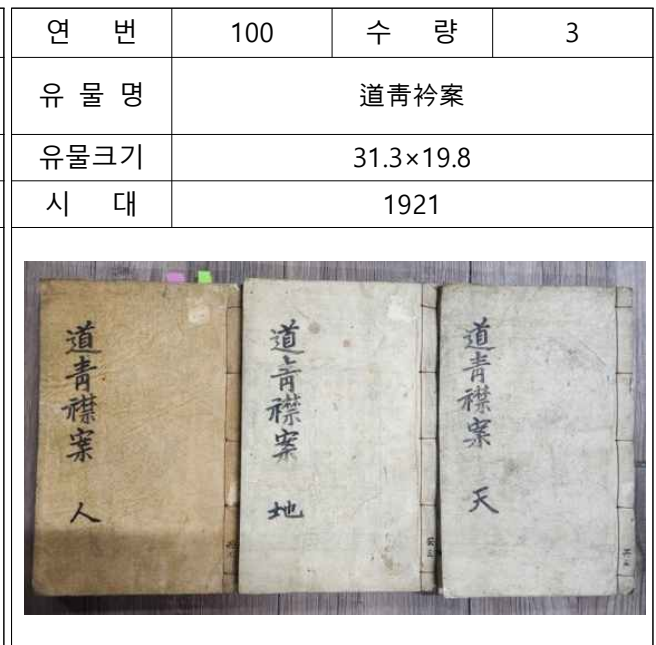 연 번 100 수 량 3
유 물 명 道靑衿案
유물크기 31.3×19.8
시 대 1921
道青襟案 天
道青襟案 地
道青襟案 人